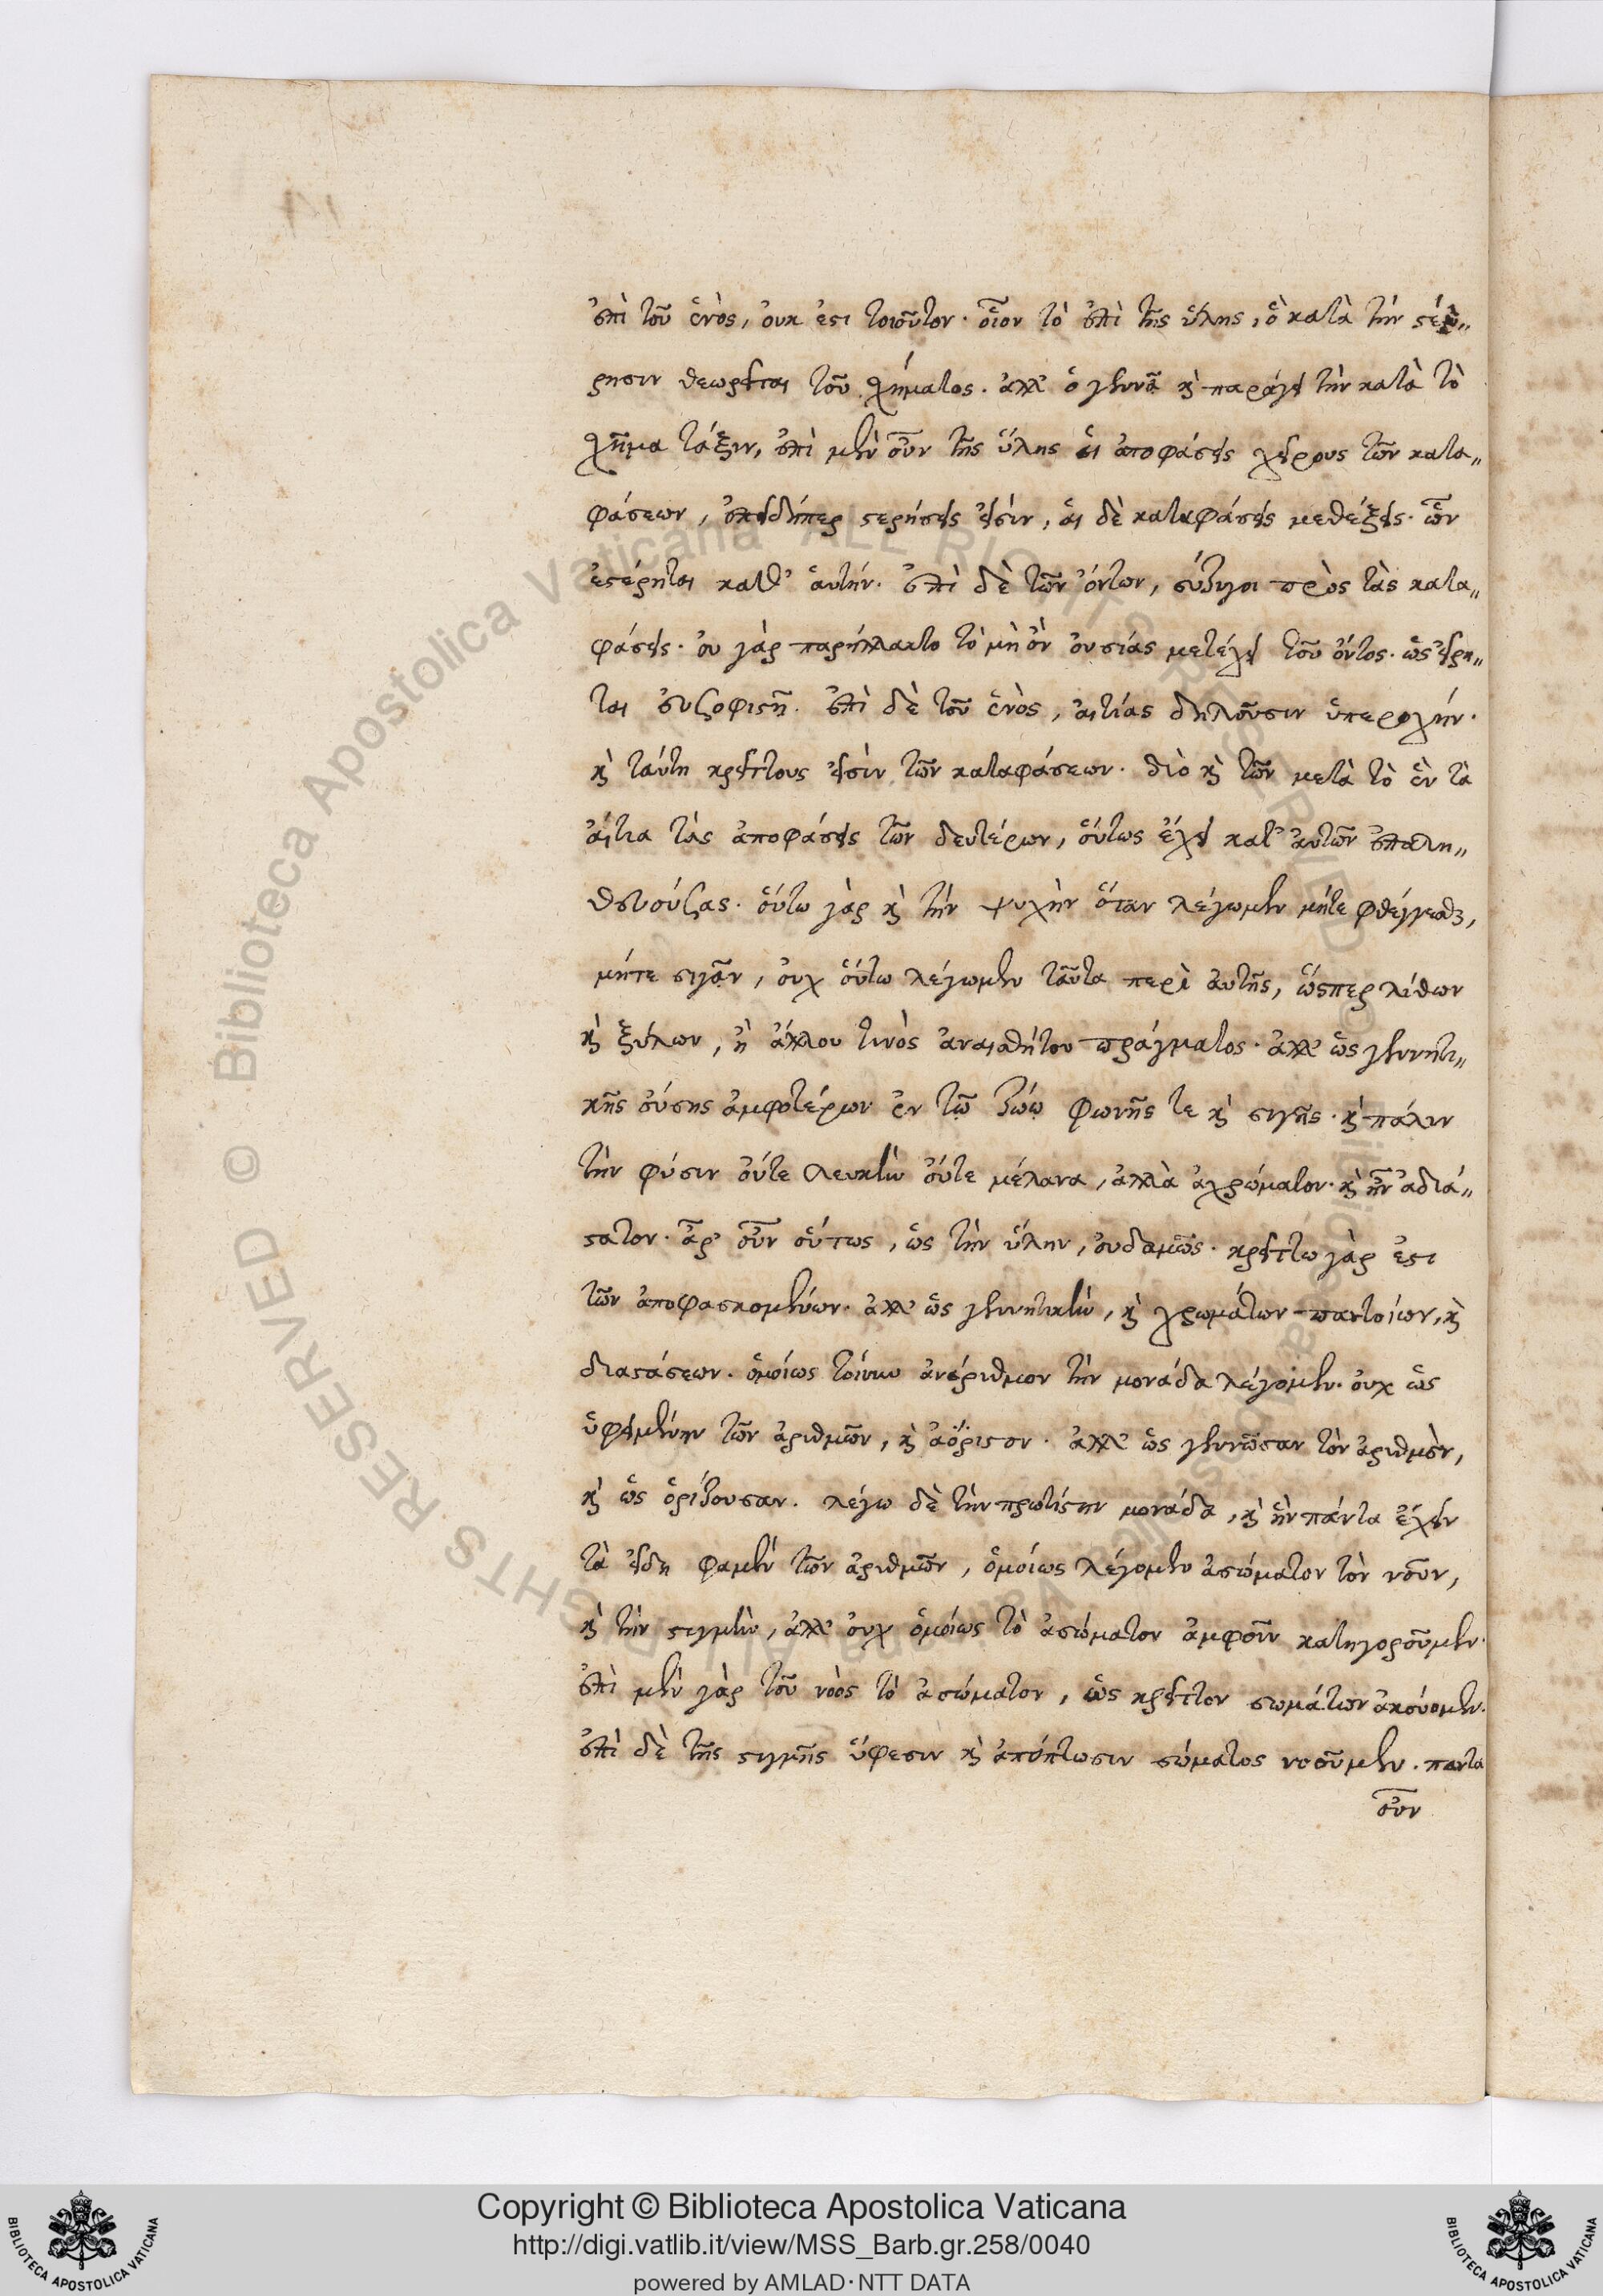 ἐπὶ τοῦ ἑνὸς, ουκ ἐστι τοιοῦτον· οἷον τὸ ἐπὶ τῆς ὕλης, ὃ κατὰ τὴν στέ„
ρησιν θεωρεῖται τοῦ σχήματος. ἀλλ' ὃ γεννᾷ κὶ παράγει τὴν κατὰ τὸ
σχῆμα τάξιν, ἐπὶ μὲν οὖν τῆς ὕλης ἁι ἀποφάσεις χείρους τῶν κατα„
φάσεων, ἐπειδήπερ στερήσεις εἰσίν, ἁι δὲ καταφάσεις μεθέξεις· ὧν
ἐστέρηται καθ' ἁυτήν. ἐπὶ δὲ τῶν ὄντων, σύζυγοι πρὸς τὰς κατα„
φάσεις· ου γὰρ παρήλλακτο τὸ μὴ ὂν ουσίας μετέχει τοῦ ὄντος· ὡς εἴρη„
ται ἐν σοφιστῇ. ἐπὶ δὲ τοῦ ἑνὸς, ἀιτίας δηλοῦσιν ὑπεροχήν·
κὶ ταύτῃ κρείττους εἰσὶν τῶν καταφάσεων. διὸ κὶ τῶν μετὰ τὸ ἓν τὰ
ἀίτια τάς ἀποφάσεις τῶν δευτέρων, ὅυτως ἔχει κατ' ἀυτῶν ἐπαλη„
θευούσας. ὅυτω γὰρ κὶ τὴν ψυχὴν ὅταν λέγωμεν μήτε φθέγγεσθαι,
μήτε σιγᾶν, ὀυχ ὅυτω λέγωμεν ταῦτα περὶ ἀυτῆς, ὥςπερ λίθων
κὶ ξύλων, ἢ ἄλλου τινὸς ἀναισθήτου πράγματος. ἀλλ' ὡς γεννητι„
κῆς ὀύσης ἀμφοτέρων ἐν τῷ ζώῳ φωνῆς τε κὶ σιγῆς. κὶ πάλιν
τὴν φύσιν ὄυτε λευκὴν ὄυτε μέλανα, ἀλλὰ ἀχρώματον· κὶ ἦν ἀδιά„
στατον. ἆρ' οὖν ὅυτως, ὡς τὴν ὕλην, ὀυδαμῶς. κρείττω γάρ ἐστι
τῶν ἀποφασκομένων. ἀλλ' ὡς γεννητικὴν, κὶ χρωμάτων παντοίων, κὶ
διαστάσεων. ὁμοίως τοίνυν ἀνάριθμον τὴν μονάδα λέγομεν. ὀυχ ὡς
ὑφειμένην τῶν ἀριθμῶν, κὶ ἀόριστον. ἀλλ' ὡς γεννῶσαν τὸν ἀριθμὸν,
κὶ ὡς ὁρίζουσαν. λέγω δὲ τὴν πρωτίστην μονάδα, κὶ ἣν πάντα ἔχειν
τὰ εἴδη φαμὲν τῶν ἀριθμῶν, ὁμοίως λέγομεν ἀσώματον τὸν νοῦν,
κὶ τὴν στιγμὴν, ἀλλ' ὀυχ ὁμοίως τὸ ἀσώματον ἀμφοῖν κατηγοροῦμεν·
ἐπὶ μὲν γὰρ τοῦ νοὸς τὸ ἀσώματον, ὡς κρεῖττον σωμάτων ἀκούομεν.
ἐπὶ δὲ τῆς στιγμῆς ὕφεσιν κὶ ἀπόπτωσιν σώματος νοοῦμεν. παντα
οὖν
Copyright © Biblioteca Apostolica Vaticana
http://digi.vatlib.it/view/MSS_Barb.gr.258/0040
powered by AMLAD·NTT DATA